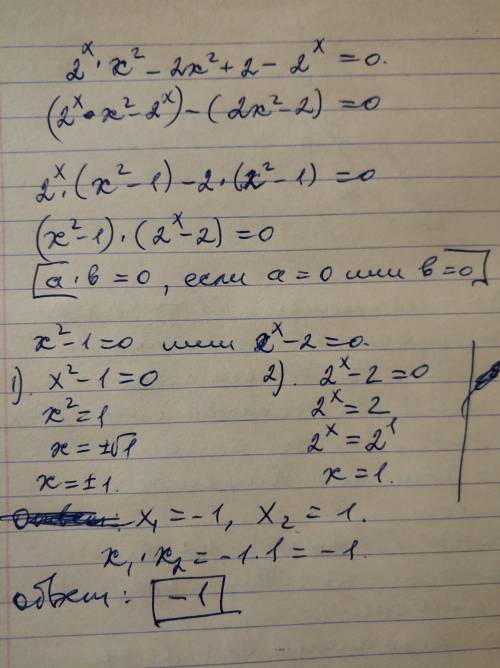 2^x · x² - 2x² + 2 - 2^x = 0.
(2^x · x² - 2^x) - (2x² - 2) = 0
2^x · (x² - 1) - 2 · (x² - 1) = 0
(x² - 1) · (2^x - 2) = 0
a · b = 0, если a = 0 или b = 0
x² - 1 = 0 или 2^x - 2 = 0.
1). x² - 1 = 0
x² = 1
x = ±√1
x = ±1.
2). 2^x - 2 = 0
2^x = 2
2^x = 2^1
x = 1.
x₁ = -1, x₂ = 1.
x₁ · x₂ = -1 · 1 = -1.
ответ: -1